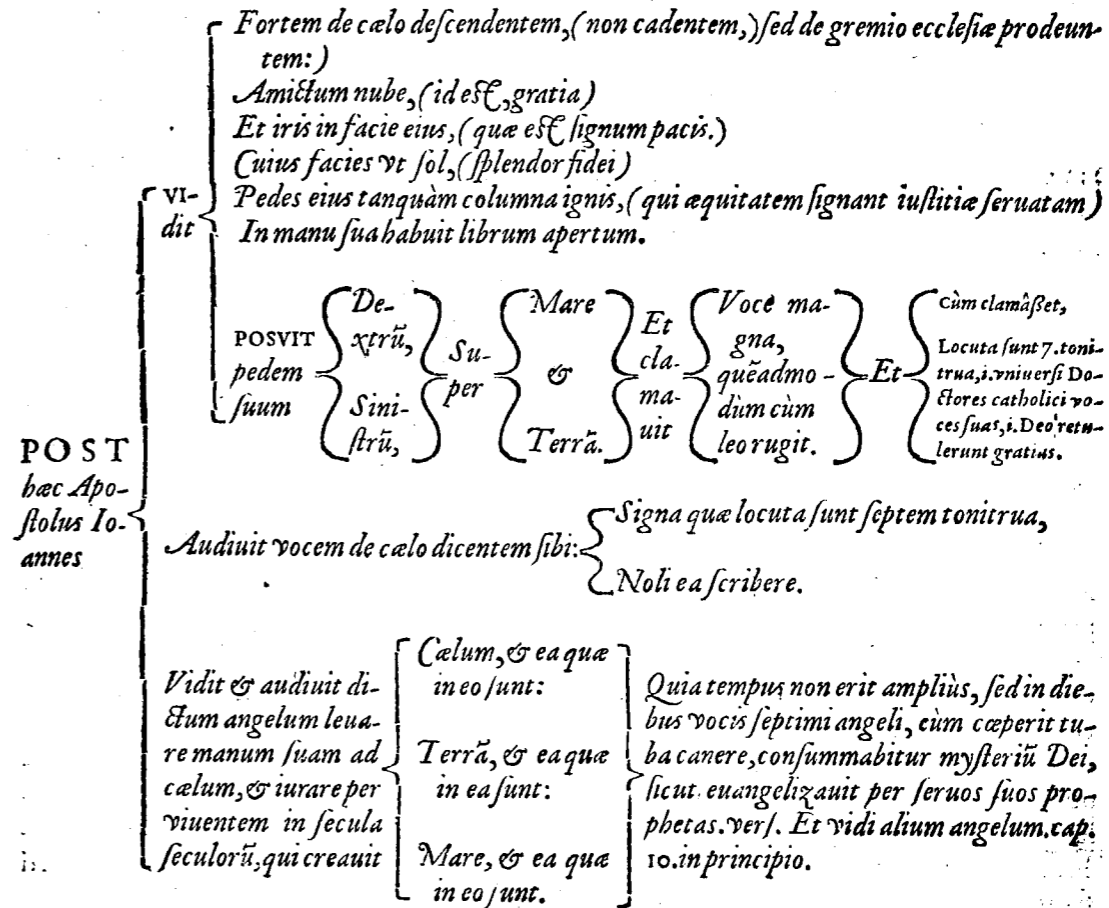 POST
hæc Apo-
ſtolus Io-
annes
VI-
dit
Fortem de cælo deſcendentem, (non cadentem,) ſed de gremio eccleſiæ prodeun-
tem:)
Amictum nube, (id eſt, gratia)
Et iris in facie eius, (quæ eſt ſignum pacis.)
Cuius facies vt ſol, (ſplendor fidei)
Pedes eius tanquàm columna ignis, (qui æquitatem ſignant iuſtitiæ ſeruatam)
In manu ſua habuit librum apertum.
POSVIT
pedem
ſuum
De-
xtrũ,
Sini-
ſtrũ,
Su-
per
Mare
&
Terrã.
Et
cla-
ma-
uit
Voce ma-
gna,
quẽadmo-
dùm cùm
leo rugit.
Et
Cùm clamâſſet,
Locuta ſunt 7. toni-
trua, i. vniuerſi Do-
ctores catholici vo-
ces ſuas, i. Deo retu-
lerunt gratias.
Audiuit vocem de cælo dicentem ſibi:
Signa quæ locuta ſunt ſeptem tonitrua,
Noli ea ſcribere.
Vidit & audiuit di-
ctum angelum leua-
re manum ſuam ad
cælum, & iurare per
viuentem in ſecula
ſeculorũ, qui creauit
Cælum, & ea quæ
in eo ſunt:
Terrã, & ea quæ
in ea ſunt:
Mare, & ea quæ
in eo ſunt.
Quia tempus non erit ampliùs, ſed in die-
bus vocis ſeptimi angeli, cùm cœperit tu-
ba canere, conſummabitur myſteriũ Dei,
ſicut euangelizauit per ſeruos ſuos pro-
phetas. verſ. Et vidi alium angelum. cap.
10. in principio.